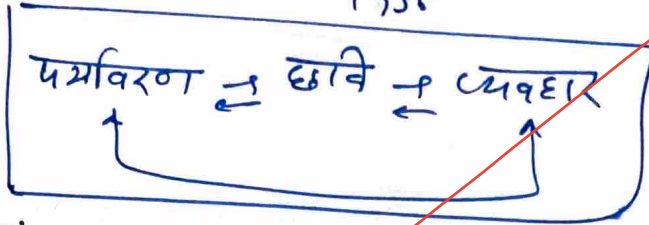 पर्यावरण ⇌ छवि ⇌ व्यवहार